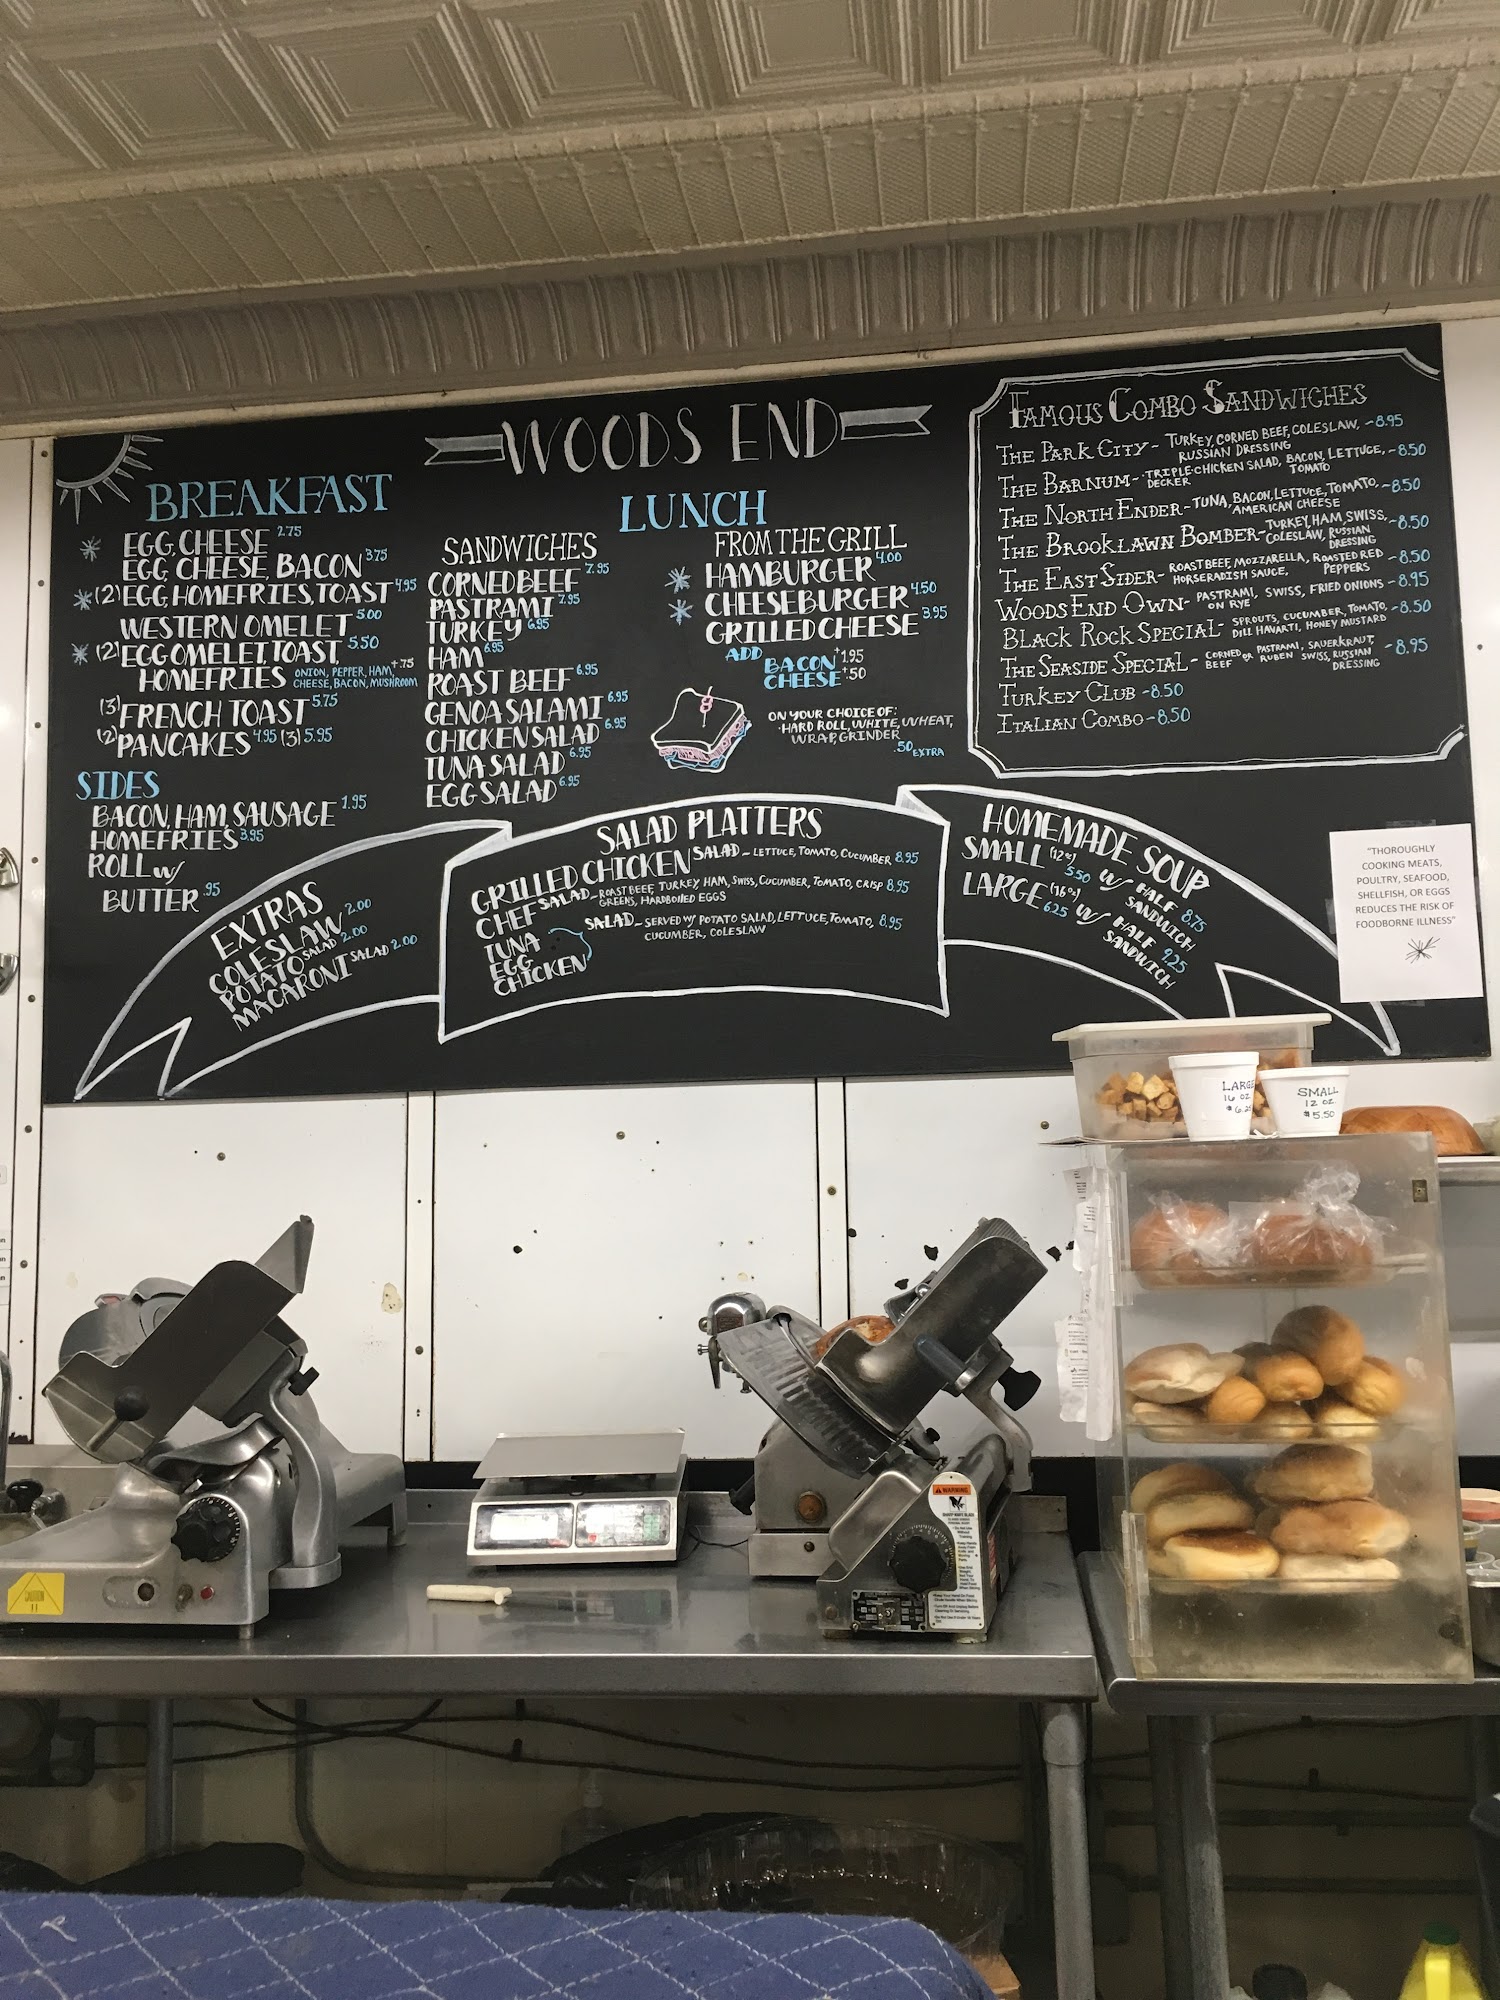 WOODS END
BREAKFAST
EGG, CHEESE 2.75
EGG, CHEESE, BACON 3.75
(2) EGG, HOMEFRIES, TOAST 4.95
WESTERN OMELET 5.00
(2) EGG OMELET, TOAST, 5.50
HOMEFRIES ONION, PEPPER, HAM, +.75
CHEESE, BACON, MUSHROOM
(3) FRENCH TOAST 5.75
(2) PANCAKES 4.95 (3) 5.95
SIDES
BACON, HAM, SAUSAGE 1.95
HOMEFRIES 3.95
ROLL W/
BUTTER .95
LUNCH
SANDWICHES
CORNED BEEF 7.95
PASTRAMI 7.95
TURKEY 6.95
HAM 6.95
ROAST BEEF 6.95
GENOA SALAMI 6.95
CHICKEN SALAD 6.95
TUNA SALAD 6.95
EGG SALAD 6.95
FROM THE GRILL
HAMBURGER 4.00
CHEESEBURGER 4.50
GRILLED CHEESE 3.95
ADD
BACON +1.95
CHEESE +.50
ON YOUR CHOICE OF:
HARD ROLL, WHITE, WHEAT,
WRAP, GRINDER
.50 EXTRA
FAMOUS COMBO SANDWICHES
THE PARK CITY - TURKEY, CORNED BEEF, COLESLAW, - 8.95
RUSSIAN DRESSING
THE BARNUM - TRIPLE- CHICKEN SALAD, BACON, LETTUCE, - 8.50
DECKER TOMATO
THE NORTH ENDER - TUNA, BACON, LETTUCE, TOMATO, - 8.50
AMERICAN CHEESE
THE BROOKLAWN BOMBER - TURKEY, HAM, SWISS, - 8.50
COLESLAW, RUSSIAN
DRESSING
THE EAST SIDER - ROAST BEEF, MOZZARELLA, ROASTED RED - 8.50
HORSERADISH SAUCE, PEPPERS
WOODS END OWN - PASTRAMI, SWISS, FRIED ONIONS - 8.95
ON RYE
BLACK ROCK SPECIAL - SPROUTS, CUCUMBER, TOMATO, - 8.50
DILL HAVARTI, HONEY MUSTARD
THE SEASIDE SPECIAL - CORNED OR PASTRAMI, SAUERKRAUT, - 8.95
BEEF RUBEN SWISS, RUSSIAN
DRESSING
TURKEY CLUB - 8.50
ITALIAN COMBO - 8.50
EXTRAS
COLESLAW 2.00
POTATO SALAD 2.00
MACARONI SALAD 2.00
SALAD PLATTERS
GRILLED CHICKEN SALAD - LETTUCE, TOMATO, CUCUMBER 8.95
CHEF SALAD - ROAST BEEF, TURKEY, HAM, SWISS, CUCUMBER, TOMATO, CRISP 8.95
GREENS, HARDBOILED EGGS
TUNA
EGG
CHICKEN
SALAD - SERVED W/ POTATO SALAD, LETTUCE, TOMATO, 8.95
CUCUMBER, COLESLAW
HOMEMADE SOUP
SMALL (12 oz) 5.50 W/ HALF 8.75
SANDWICH
LARGE (16 oz) 6.25 W/ HALF 9.25
SANDWICH
"THOROUGHLY
COOKING MEATS,
POULTRY, SEAFOOD,
SHELLFISH, OR EGGS
REDUCES THE RISK OF
FOODBORNE ILLNESS"
LARGE
16 OZ
$6.25
SMALL
12 OZ.
$5.50
WARNING
CAUTION